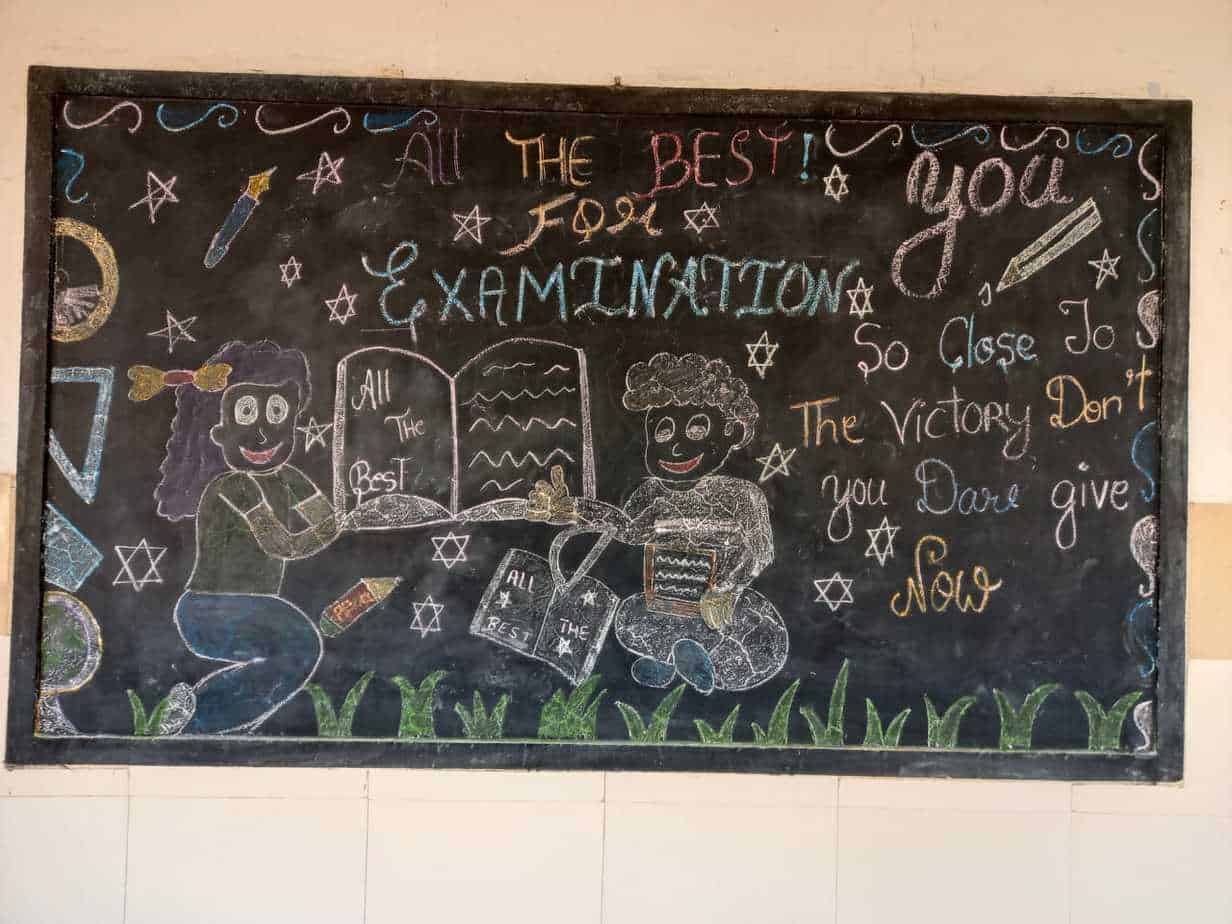 All THE BEST!
FOR
EXAMINATION
you
So Close To
The Victory Don't
you Dare give
Now
All
The
Best
ALL
BEST
THE